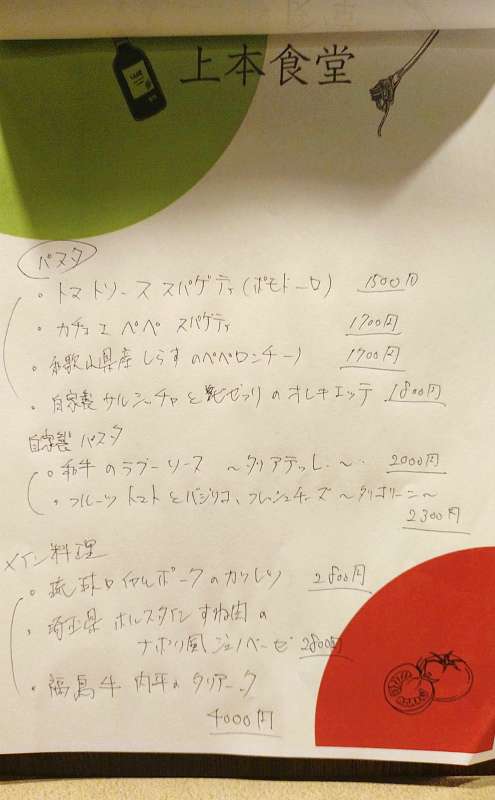 上本食堂
パスタ
・トマトソース スパゲティ(ポモドーロ) 1500円
・カチョエペペ スパゲティ 1700円
・和歌山県産しらすのペペロンチーノ 1700円
・自家製サルシッチャと ゼッリのオレキエッテ 1800円
自家製パスタ
・和牛のラグーソース 〜タリアテッレ〜 2000円
・フルーツトマトとバジリコ、フレッシュチーズ 〜タリオリーニ〜
2300円
メイン料理
・琉球ロイヤルポークのカツレツ 2800円
・埼玉県 ホルスタインすね肉の
ナポリ風ジェノベーゼ 2800円
・福島牛 内平のタリアータ
4000円